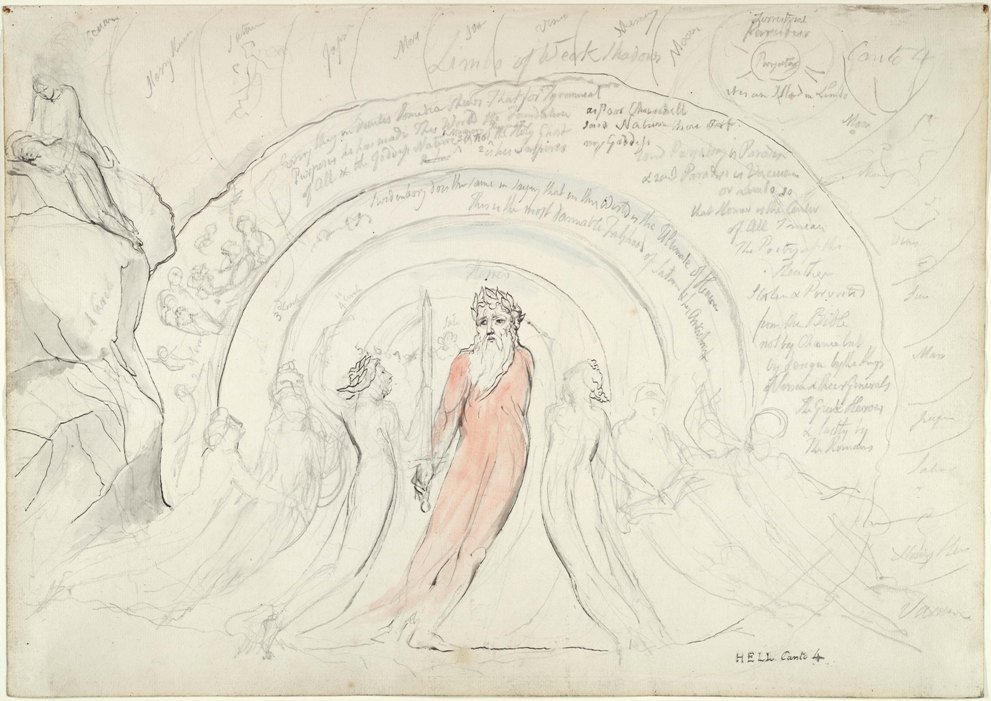 Vacuum
Starry Heav
Saturn
Jupr
Mars
Sun
Venus
Mercury
Moon
Limbo of Weak Shadows
Terrestrial
Paradise
Purgatory
It is an Island in Limbo
Canto 4
Every thing in Dantes Comedia Shews That for Tyrannical
Purposes he has made This World the Foundation
of All & the Goddess Nature & not the Holy Ghost
as Poor Churchill
said Nature thou art
my Goddess
Swedenborg does the same in saying that in this World is the Ultimate of Heaven
This is the most damnable Falshood of Satan & his Antichrist
Round Purgatory is Paradise
& round Paradise is Vacuum
or Limbo. so
that Homer is the Center
of All I mean
The Poetry of the
Heathen
Stolen & Perverted
from the Bible
not by Chance but
by design by the Kings
of Persia & their Generals
The Greek Heroes
& lastly by
The Romans
Homer
Moon
Mercury
Venus
Sun
Mars
Jupiter
Saturn
Starry Heav
Vacuum
HELL Canto 4